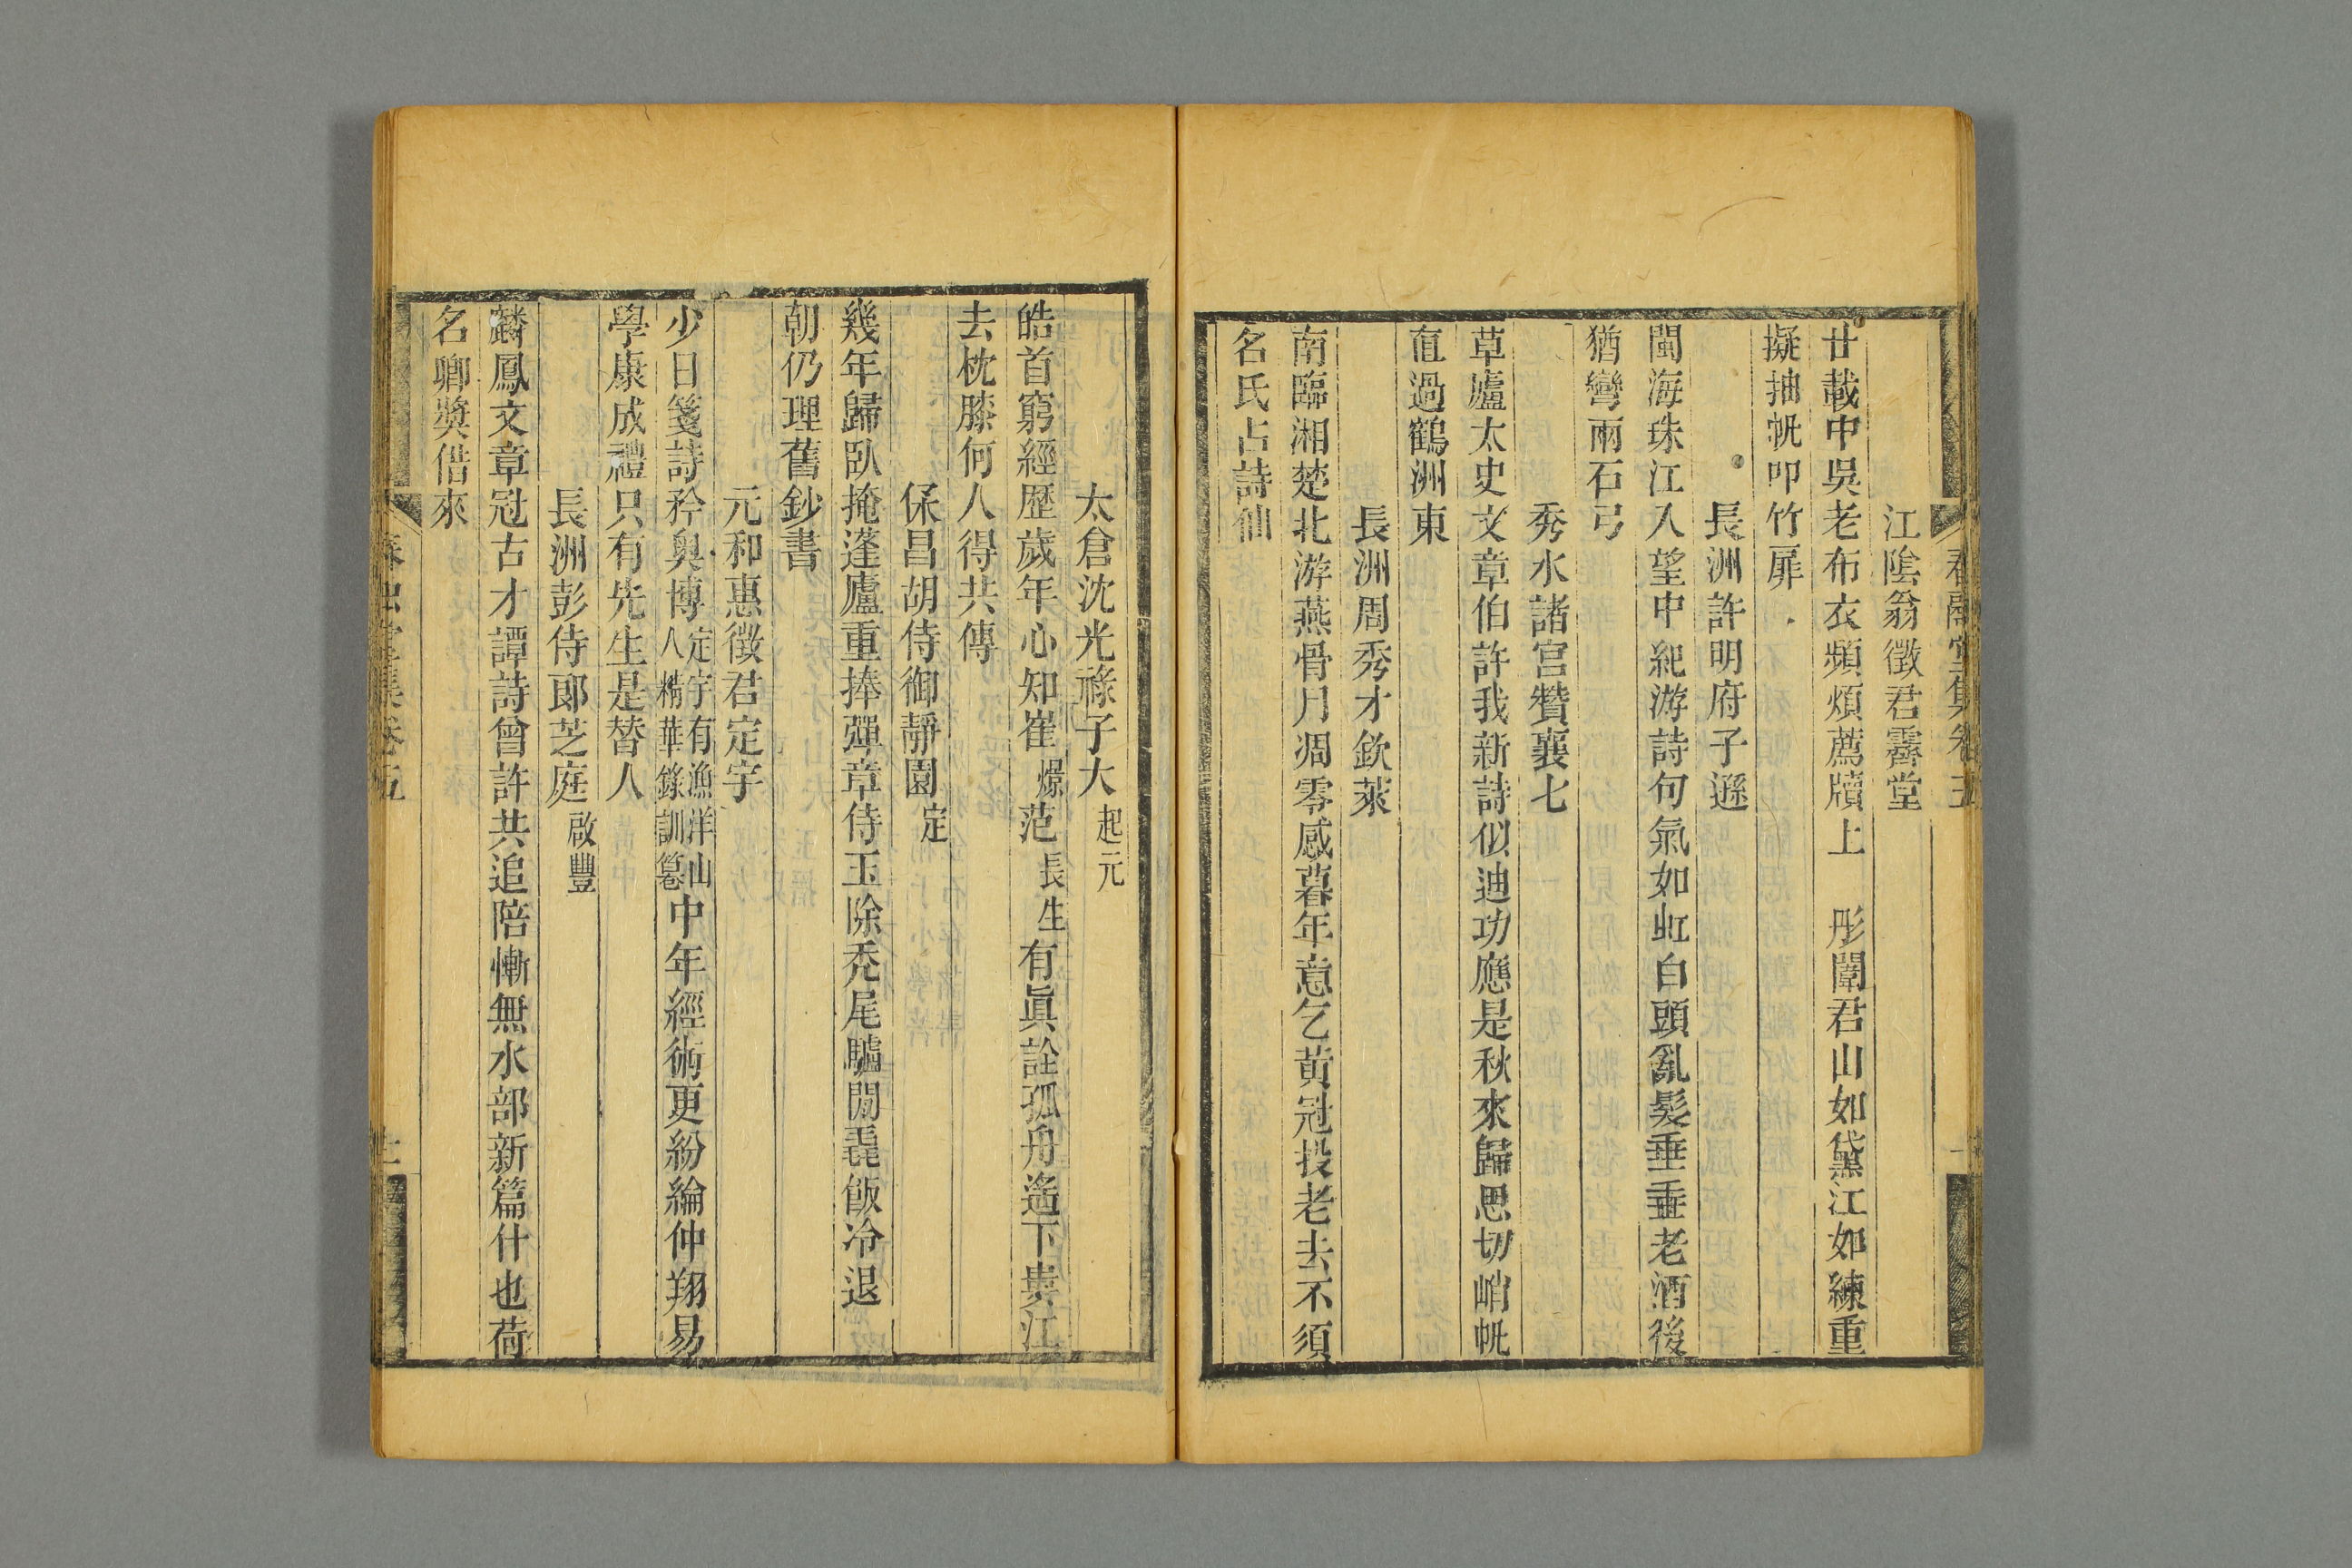 江陰翁徵君霽堂
廿載中吳老布衣頻煩薦牘上 彤闈君山如黛江如練重
擬抽帆叩竹扉
長洲許明府子遜
閩海珠江入望中紀游詩句氣如虹白頭亂髮垂垂老酒後
猶彎兩石弓
秀水諸宮贊襄七
草廬太史文章伯許我新詩似迪功應是秋來歸思切峭帆
直過鶴洲東
長洲周秀才欽萊
南臨湘楚北游燕骨月凋零感暮年意乞黃冠投老去不須
名氏占詩仙
太倉沈光祿子大起元
皓首窮經歷歲年心知崔憬范長生有眞詮孤舟遙下婁江
去枕膝何人得共傳
保昌胡侍御靜園定
幾年歸臥掩蓬廬重捧彈章侍玉除禿尾驢閒毳飯冷退
朝仍理舊鈔書
元和惠徵君定宇
少日箋詩矜奧博定宇有漁洋山人精華錄訓纂中年經術更紛綸仲翔易
學康成禮只有先生是替人
長洲彭侍郎芝庭啟豐
麟鳳文章冠古才譚詩曾許共追陪慚無水部新篇什也荷
名卿獎借來
春融堂集卷五